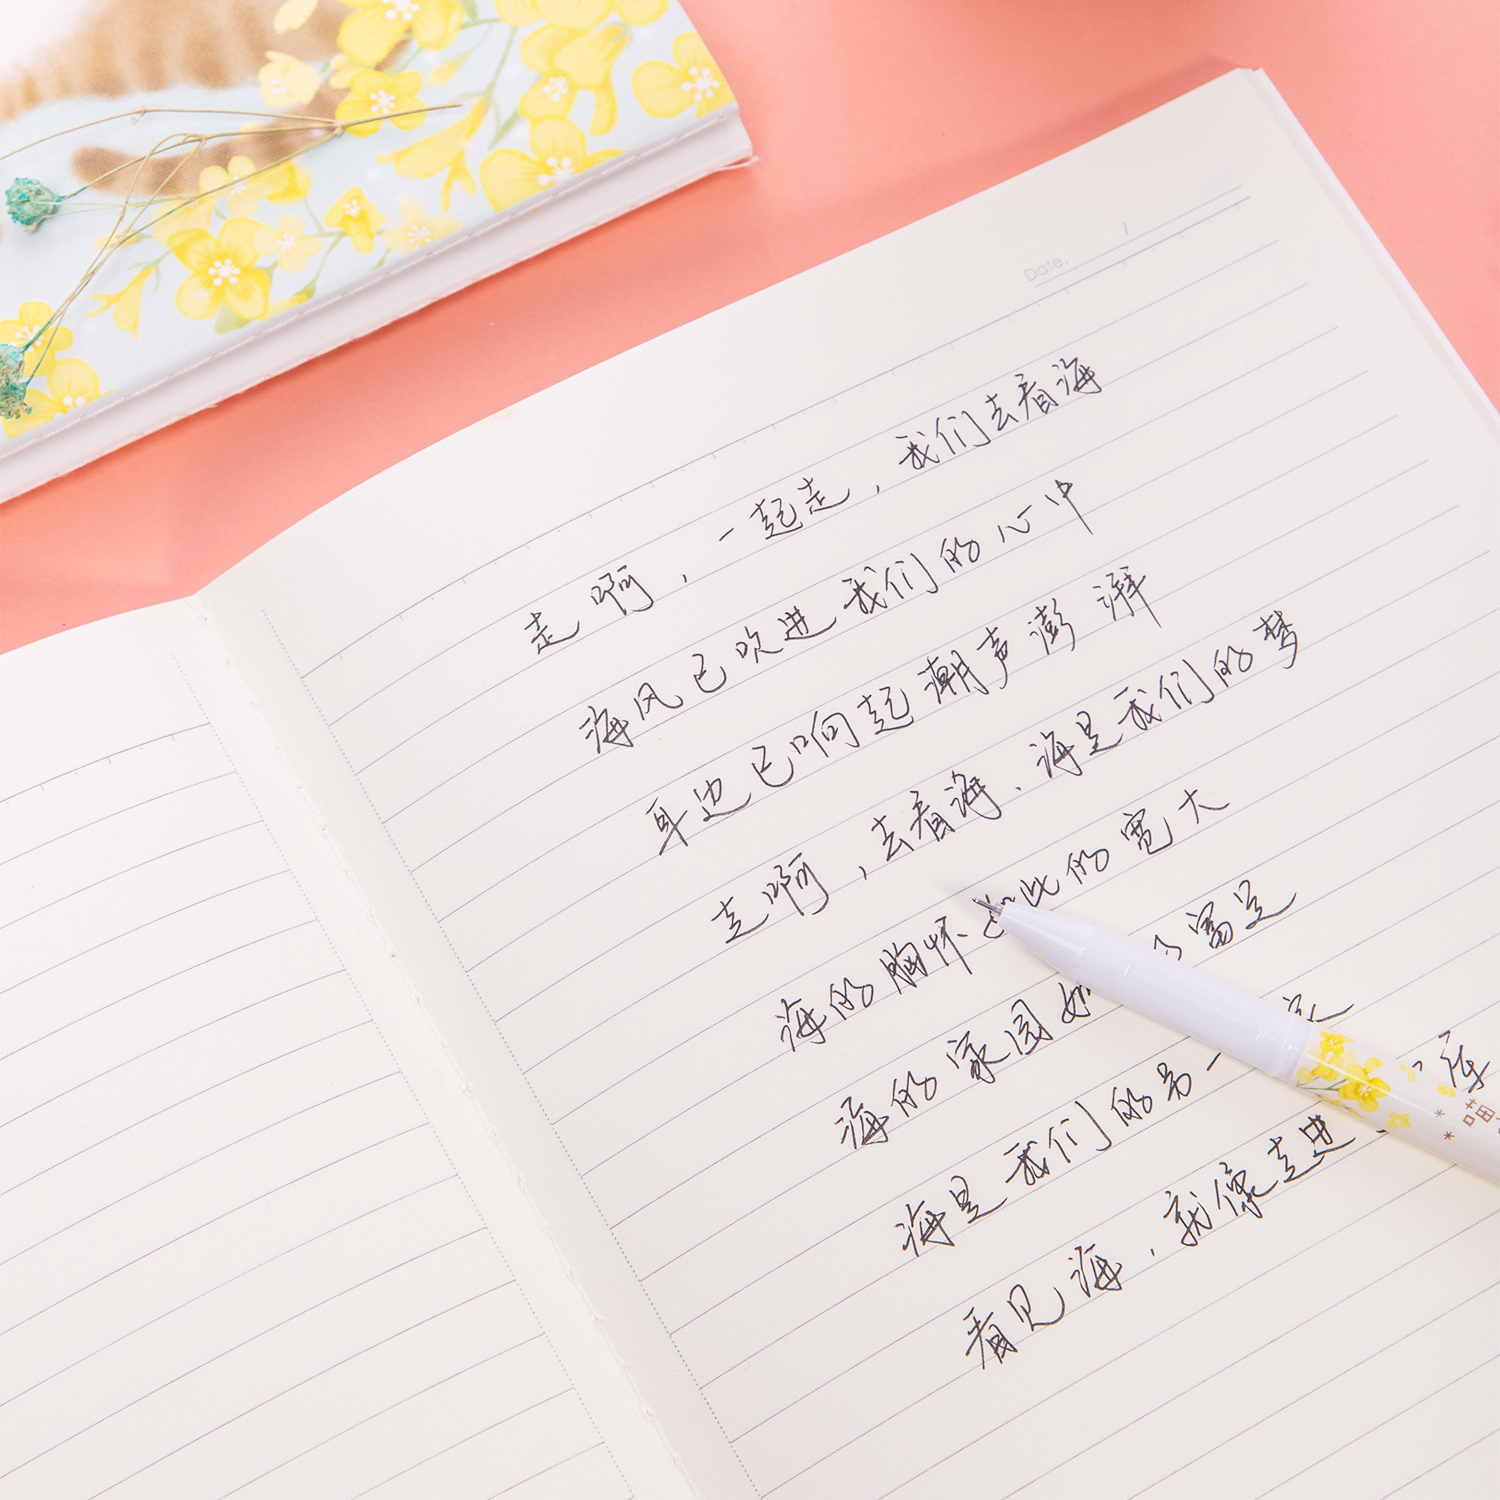 Date.
走啊，一起走，我们去看海
海风已吹进我们的心中
耳边已响起潮声澎湃
走啊，去看海、海是我们的梦
海的胸怀如此的宽大
海的家园如 富足
海是我们的另一 家
看见海、就像走进 库
喵